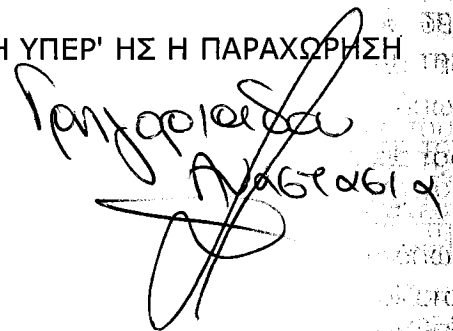 Η ΥΠΕΡ' ΗΣ Η ΠΑΡΑΧΩΡΗΣΗ
Γρηγοριάδου
Αναστασία